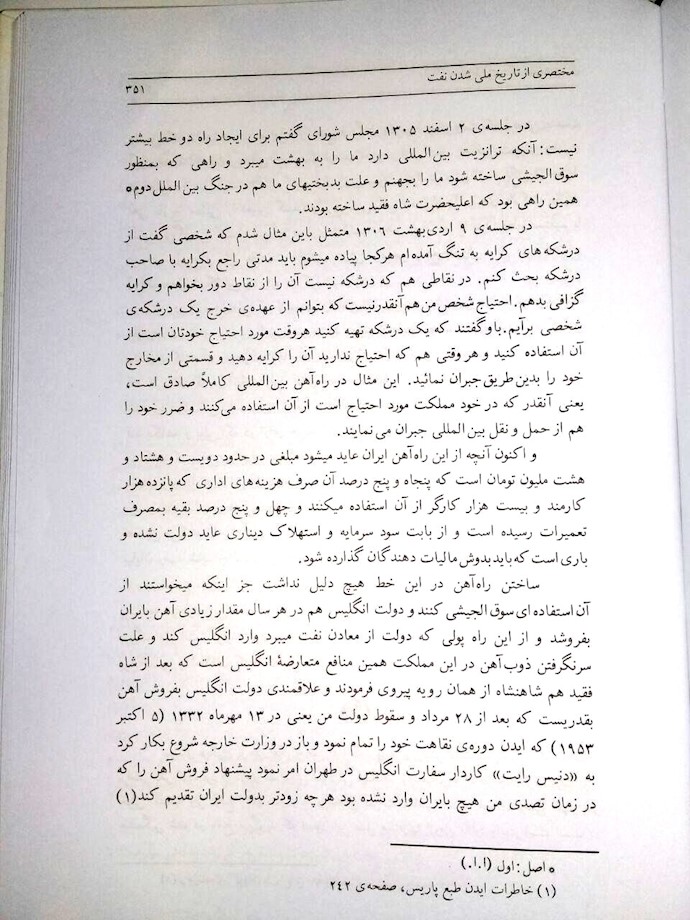 مختصری از تاریخ ملی شدن نفت
۳۵۱
در جلسه‌ی ۲ اسفند ۱۳۰۵ مجلس شورای گفتم برای ایجاد راه دو خط بیشتر
نیست: آنکه ترانزیت بین‌المللی دارد ما را به بهشت میبرد و راهی که بمنظور
سوق الجیشی ساخته شود ما را بجهنم و علت بدبختیهای ما هم در جنگ بین الملل دوم٥
همین راهی بود که اعلیحضرت شاه فقید ساخته بودند.
در جلسه‌ی ۹ اردی‌بهشت ۱۳۰۶ متمثل باین مثال شدم که شخصی گفت از
درشکه های کرایه به تنگ آمده‌ام هرکجا پیاده میشوم باید مدتی راجع بکرایه با صاحب
درشکه بحث کنم. در نقاطی هم که درشکه نیست آن را از نقاط دور بخواهم و کرایه
گزافی بدهم. احتیاج شخص من هم آنقدر نیست که بتوانم از عهده‌ی خرج یک درشکه‌ی
شخصی برآیم. باو گفتند که یک درشکه تهیه کنید هروقت مورد احتیاج خودتان است از
آن استفاده کنید و هر وقتی هم که احتیاج ندارید آن را کرایه دهید و قسمتی از مخارج
خود را بدین طریق جبران نمائید. این مثال در راه‌آهن بین‌المللی کاملاً صادق است،
یعنی آنقدر که در خود مملکت مورد احتیاج است از آن استفاده می‌کنند و ضرر خود را
هم از حمل و نقل بین المللی جبران می نمایند.
و اکنون آنچه از این راه‌آهن ایران عاید میشود مبلغی در حدود دویست و هشتاد و
هشت ملیون تومان است که پنجاه و پنج درصد آن صرف هزینه‌های اداری که پانزده هزار
کارمند و بیست هزار کارگر از آن استفاده میکنند و چهل و پنج درصد بقیه بمصرف
تعمیرات رسیده است و از بابت سود سرمایه و استهلاک دیناری عاید دولت نشده و
باری است که باید بدوش مالیات دهندگان گذارده شود.
ساختن راه‌آهن در این خط هیچ دلیل نداشت جز اینکه میخواستند از
آن استفاده ای سوق الجیشی کنند و دولت انگلیس هم در هر سال مقدار زیادی آهن بایران
بفروشد و از این راه پولی که دولت از معادن نفت میبرد وارد انگلیس کند و علت
سرنگرفتن ذوب آهن در این مملکت همین منافع متعارضهٔ انگلیس است که بعد از شاه
فقید هم شاهنشاه از همان رویه پیروی فرمودند و علاقمندی دولت انگلیس بفروش آهن
بقدریست که بعد از ۲۸ مرداد و سقوط دولت من یعنی در ۱۳ مهرماه ۱۳۳۲ (۵ اکتبر
۱۹۵۳) که ایدن دوره‌ی نقاهت خود را تمام نمود و باز در وزارت خارجه شروع بکار کرد
به «دنیس رایت» کاردار سفارت انگلیس در طهران امر نمود پیشنهاد فروش آهن را که
در زمان تصدی من هیچ بایران وارد نشده بود هر چه زودتر بدولت ایران تقدیم کند(۱)
٥ اصل: اول (ا.ا.)
(۱) خاطرات ایدن طبع پاریس، صفحه‌ی ۲۴۲